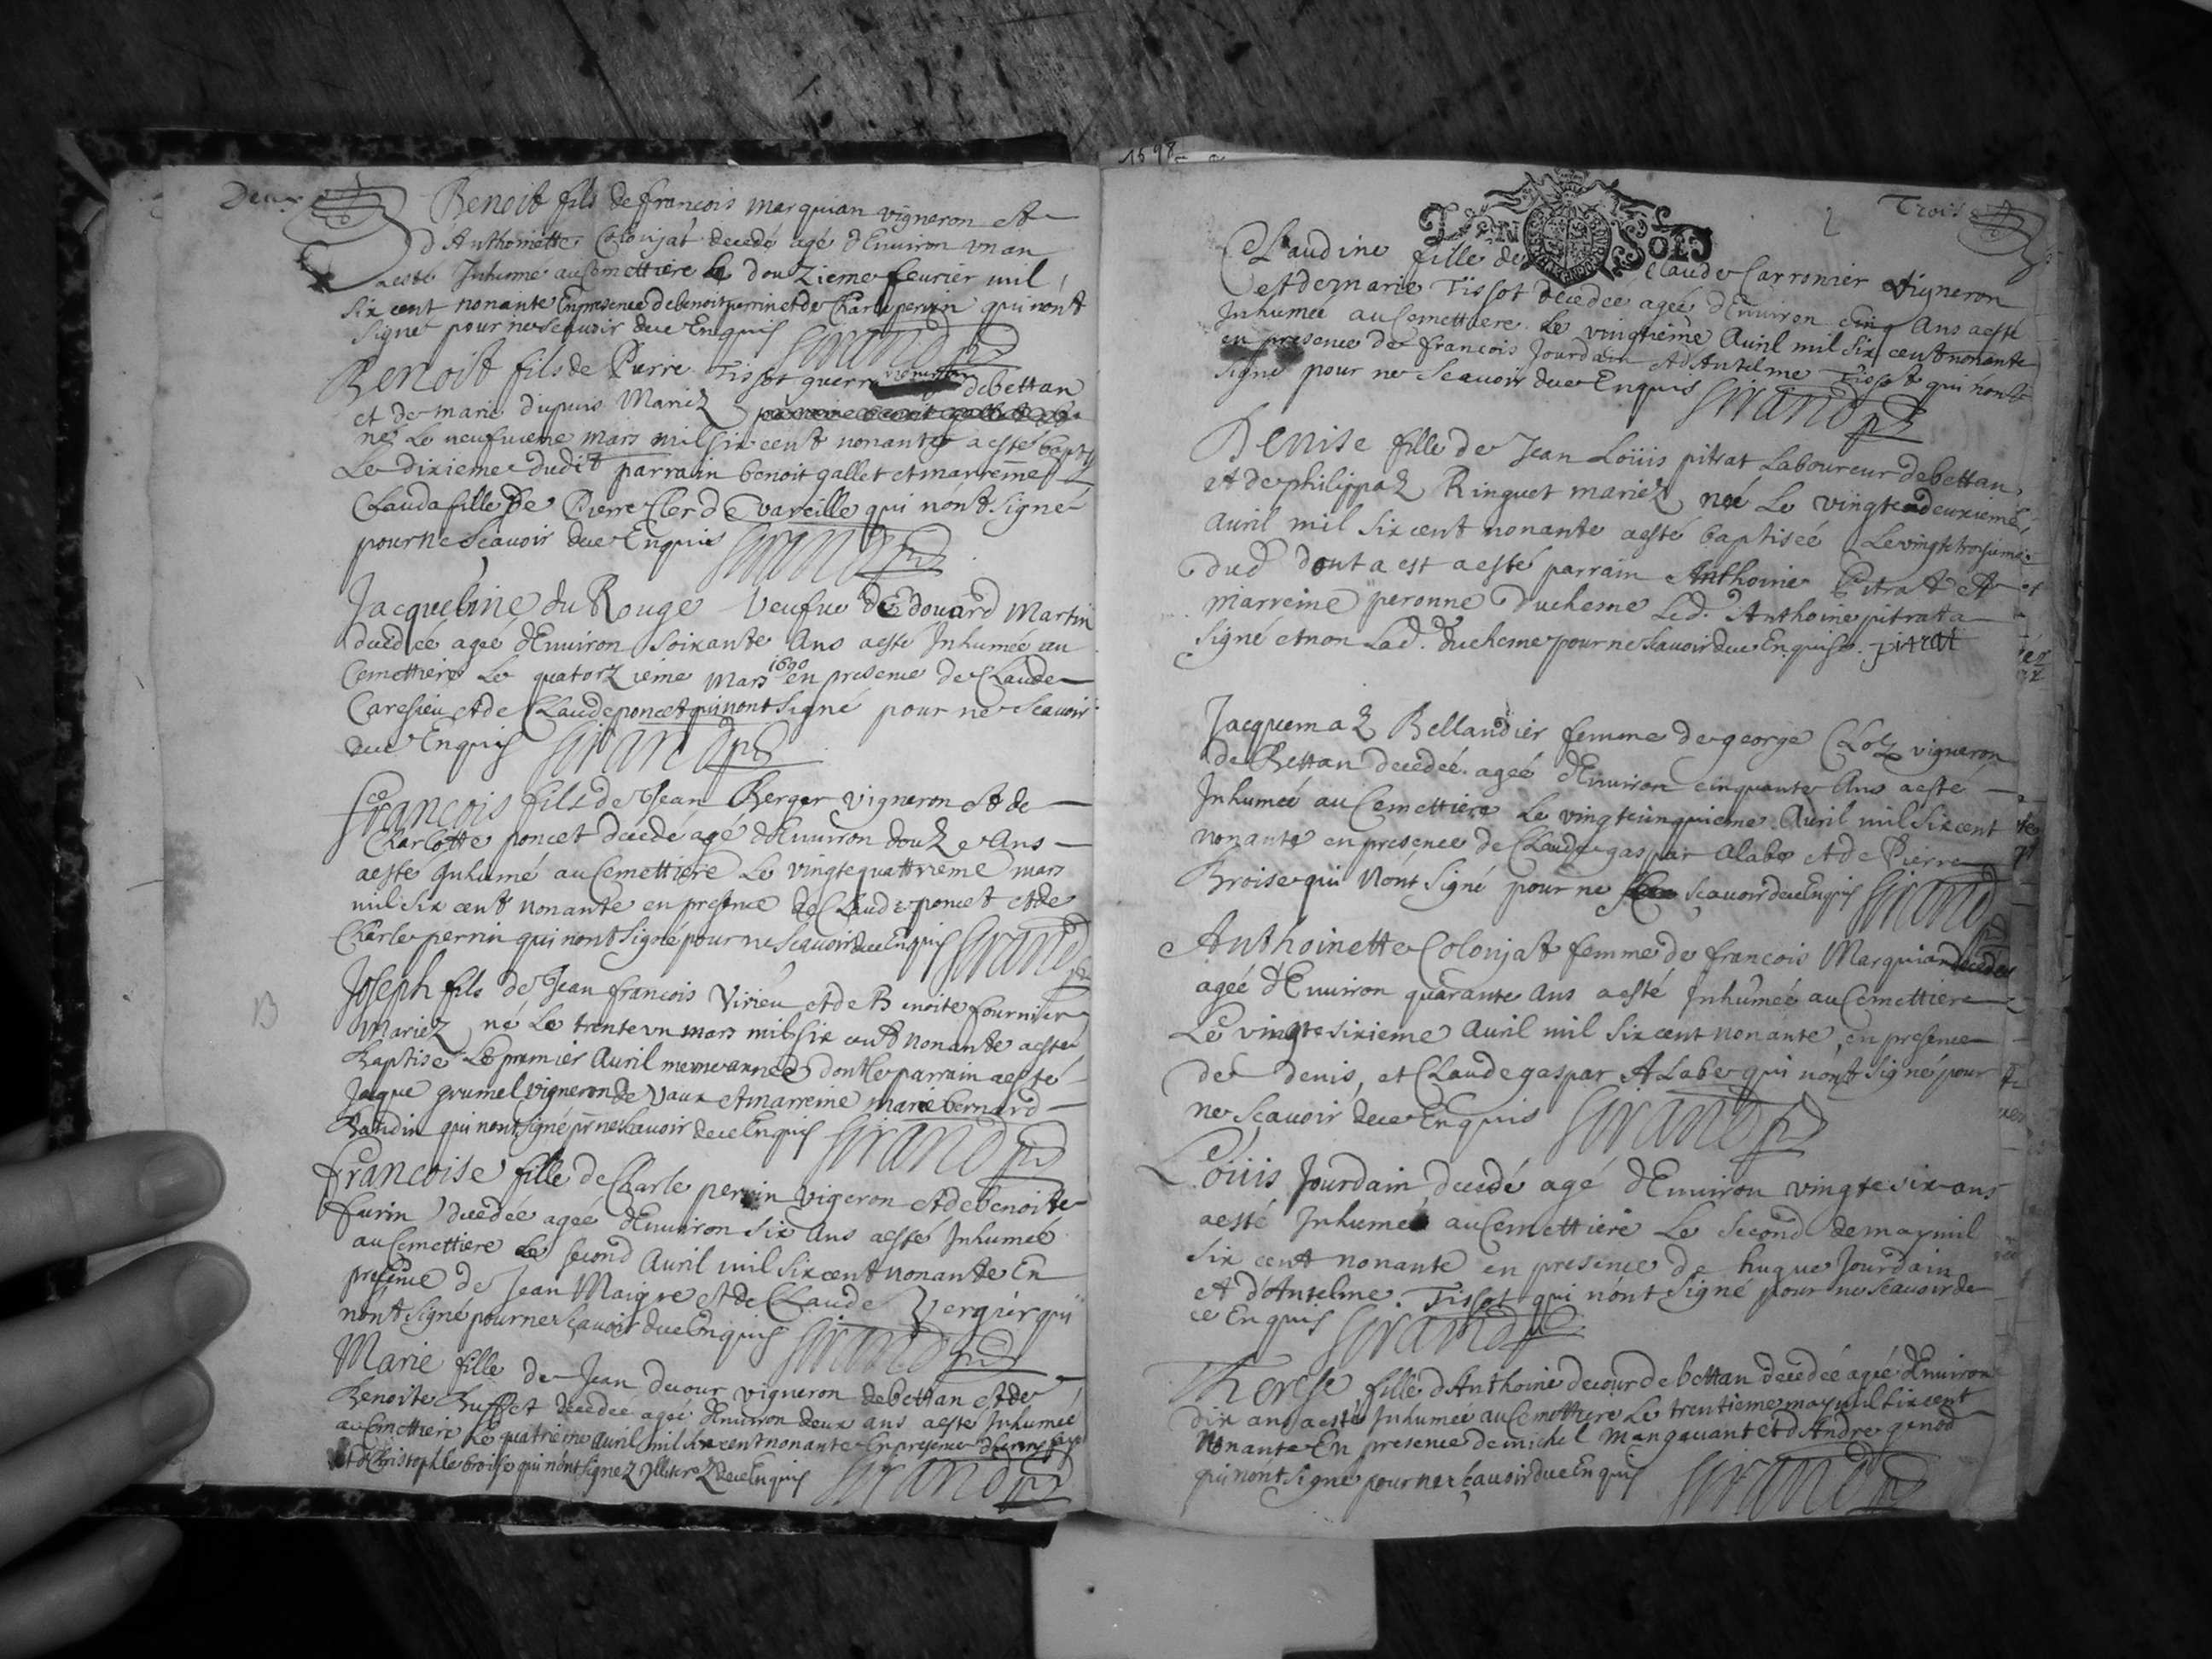 Deux
Benoit fils de francois marquian vigneron et
d'Anthoinette Colonjat decedé agé d'Environ un an
aesté Inhumé au Cemettiere le douzieme feurier mil
six cent nonante En presence de benoit perrin et de Charle perrin qui n'ont
signé pour ne scauoir de ce Enquis Girand
Benoist fils de Pierre Tissot guerre vigneron de bettan
et de marie dupuis Mariez
né Le neufuieme mars mil six cent nonante a esté bapt
Le dixieme dudit parrain benoit gallet et marreine
Clauda fille de Pierre Clerd E vareille qui n'ont signé
pour ne Scauoir de ce Enquis Girand
Jacqueline du Rouge Veufue d'Edouard Martin
decedeé ageé d'Enuiron soixante Ans aesté Inhumeé au
Cemettiere Le quatorzieme mars 1690 en presence de Claude
Caresieu et de Claude poncet qui n'ont Signé pour ne Scauoir
de ce Enquis Girand
francois fils de Jean Berger vigneron et de
Charlotte poncet decedé agé d'Enuiron douze Ans
aesté Inhumé au Cemettiere Le vingtequattrieme mars
mil six cent nonante en presence de Claude poncet et de
Charle perrin qui n'ont signé pour ne Scauoir de ce Enquis Girand
13
Joseph fils de Jean francois Virieu et de Benoite fournier
Mariez né Le trente un mars mil six cent nonante aesté
Baptisé Le premier Auril meme anneé dont le parrain aesté
Jaque grumel vigneron de Vaux et marreine marie bernard
Baudin qui n'ont signé pr ne Scauoir de ce Enquis Girand
Francoise fille de Charle perrin vigeron et de benoite
furin decedeé ageé d'Enuiron six Ans aesté Inhumeé
au Cemettiere Le second Auril mil six cent nonante En
presence de Jean Maigre et de Claude Vergier qui
n'ont signé pour ne Scauoir de ce Enquis Girand
Marie fille de Jean decour vigneron de bettan et de
Benoite Buffet decedeé ageé d'Enuiron deux ans aesté Inhumeé
au Cemettiere Le quatrieme auril mil six cent nonante En presence
et de Christophle broise qui n'ont signez Illiterez de ce Enquis Girand
1698
DEN SOLS
2
Trois
Claudine fille de Claude Carronier vigneron
et de marie Tissot decedeé ageé d'Enuiron cinq Ans aesté
Inhumeé au Cemettiere Le vingtieme Auril mil six cent nonante
en presence de francois Jourdain et d'Antelme Tissot qui n'ont
signé pour ne Scauoir de ce Enquis Girand
Denise fille de Jean Loüis pitrat Laboureur de bettan
et de philippaz Ringuet mariez neé Le vingtedeuxieme
Auril mil six cent nonante aesté baptiseé Le vingtetroisieme
dud dont a est aesté parrain Anthoine Pitrat et
marreine peronne Duchesne Led. Anthoine pitrat a
signé et non Lad. duchesne pour ne Scauoir de ce Enquise. pitrat
Jacquemaz Bellandier femme de george Cloz vigneron
de Bettan decedeé ageé d'Enuiron cinquante Ans aesté
Inhumeé au Cemettiere Le vingtcinquieme Auril mil six cent
nonante en presence de Claude gaspar Alabe et de Pierre
Broise qui n'ont signé pour ne Scauoir de ce Enquis Girand
Anthoinette Colonjat femme de francois Marquian decedeé
ageé d'Enuiron quarante ans aesté Inhumeé au Cemettiere
Le vingtesixieme Auril mil six cent nonante, en presence
de denis, et Claude gaspar Alabe qui n'ont signé pour
ne Scauoir de ce Enquis Girand
Loüis Jourdain decedé agé d'Enuiron vingtesix ans
aesté Inhumé au Cemettiere Le second de may mil
six cent nonante en presence de hugue Jourdain
et d'Antelme Tissot qui n'ont signé pour ne Scauoir de
ce Enquis Girand
Therese fille d'Anthoine decour de bettan decedeé ageé d'Enuiron
dix ans aesté Inhumeé au Cemettiere Le trentieme may mil six cent
Nonante En presence de michel mangauant et d'Andre genod
qui n'ont signé pour ne Scauoir de ce Enquis Girand